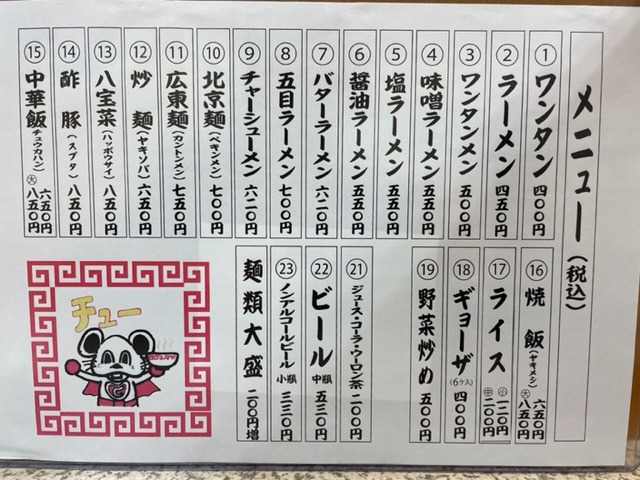 メニュー（税込）
①ワンタン 四〇〇円
②ラーメン 四五〇円
③ワンタンメン 五〇〇円
④味噌ラーメン 五五〇円
⑤塩ラーメン 五五〇円
⑥醤油ラーメン 五五〇円
⑦バターラーメン 六二〇円
⑧五目ラーメン 七〇〇円
⑨チャーシューメン 六二〇円
⑩北京麺（ペキンメン） 七〇〇円
⑪広東麺（カントンメン） 七五〇円
⑫炒麺（ヤキソバ） 六五〇円
⑬八宝菜（ハッポウサイ） 八五〇円
⑭酢豚（スブタ） 八五〇円
⑮中華飯（チュウカハン） 六五〇円
㊅八五〇円
⑯焼飯（ヤキメシ） 六五〇円
㊅八五〇円
⑰ライス ㊙一二〇円
㊥二〇〇円
⑱ギョーザ（6ケ入） 四〇〇円
⑲野菜炒め 五〇〇円
㉑ジュース・コーラ・ウーロン茶 二〇〇円
㉒ビール 中瓶 五三〇円
㉓ノンアルコールビール 小瓶 三三〇円
麺類大盛 二〇〇円増
チュー